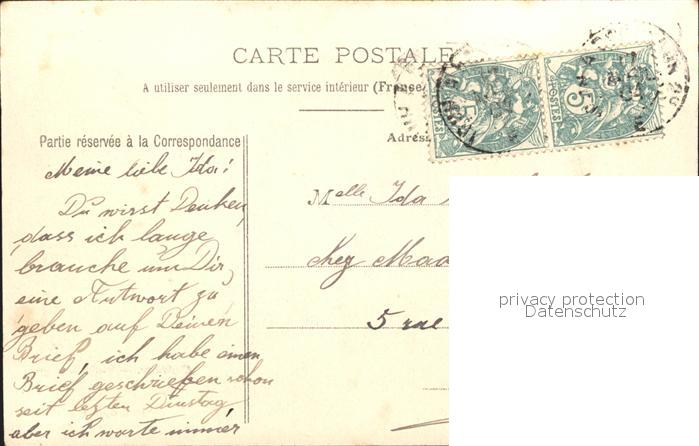 CARTE POSTALE
A utiliser seulement dans le service intérieur (France
Partie réservée à la Correspondance
Adres
Meine liebe Ida!
Du wirst Denken,
dass ich lange
brauche um Dir,
eine Antwort zu
geben auf Deinen
Brief, ich habe einen
Brief geschrieben schon
seit letzten Dinstag
aber ich warte immer
Melle Ida
Chez
5 rue
POSTES
5
POSTES
5
privacy protection
Datenschutz